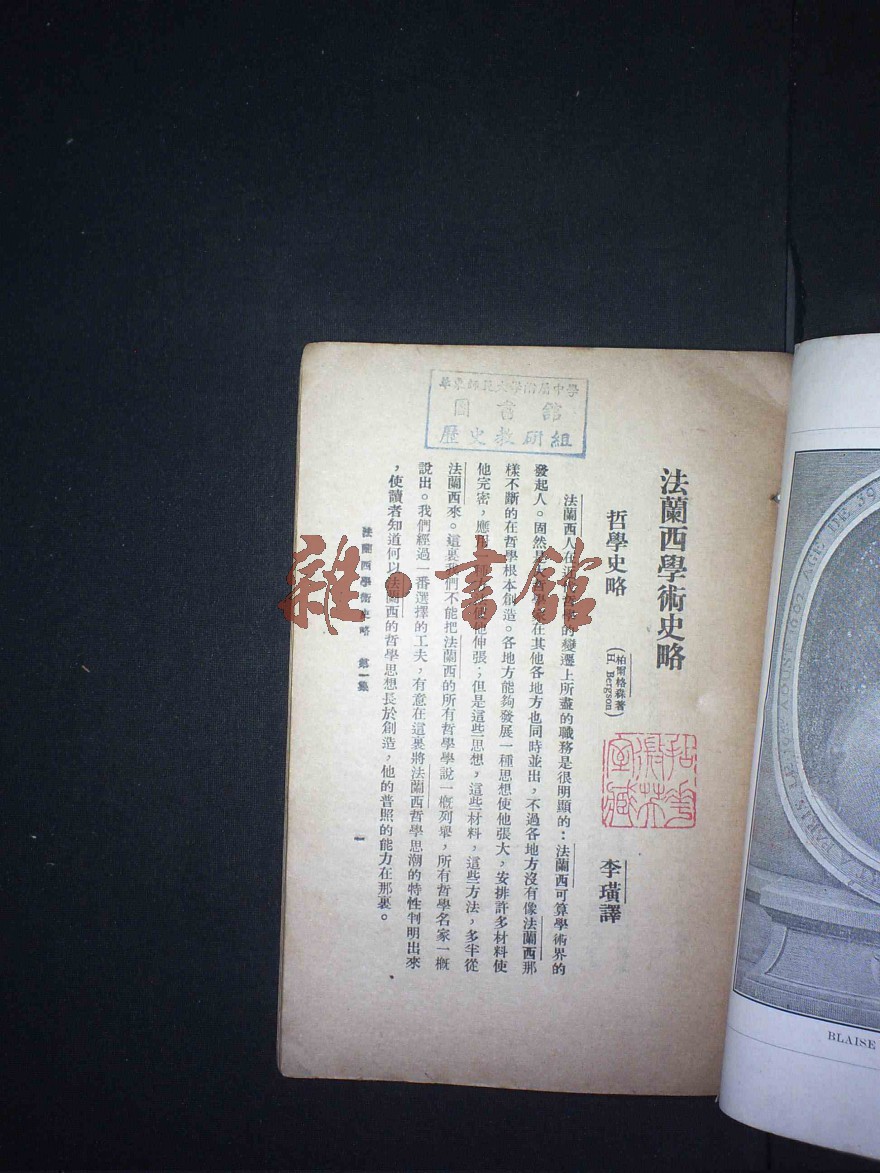 法蘭西學術史略
哲學史略
(柏爾格森著
H. Bergson)
李璜譯
法蘭西人在近代哲學的變遷上所盡的職務是很明顯的：法蘭西可算學術界的
發起人。固然是大哲學家在其他各地方也同時並出，不過各地方沒有像法蘭西那
樣不斷的在哲學根本創造。各地方能夠發展一種思想使他張大，安排許多材料使
他完密，應用一種方法使他伸張；但是這些思想，這些材料，這些方法，多半從
法蘭西來。這裏我們不能把法蘭西的所有哲學學說一概列舉，所有哲學名家一概
說出。我們經過一番選擇的工夫，有意在這裏將法蘭西哲學思潮的特性判明出來
，使讀者知道何以法蘭西的哲學思想長於創造，他的普照的能力在那裏。
法蘭西學術史略 第一集
一
華東師範大學附屬中學
圖書館
歷史教研組
雜·書館
AGE DE 39
BLAISE